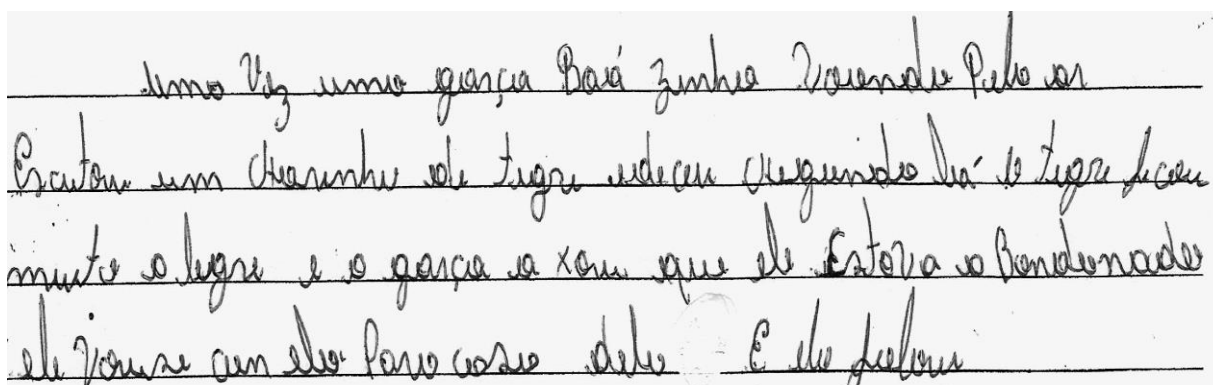 uma Vez uma garça Bará zinha Vouando Pelo ar
Escutou um chorinho de tigre edeceu chegando lá o tigre ficou
muito a legre e a garça a xou que ele Estava a Bandonado
ele vouse con ela Para casa dela E ela falou